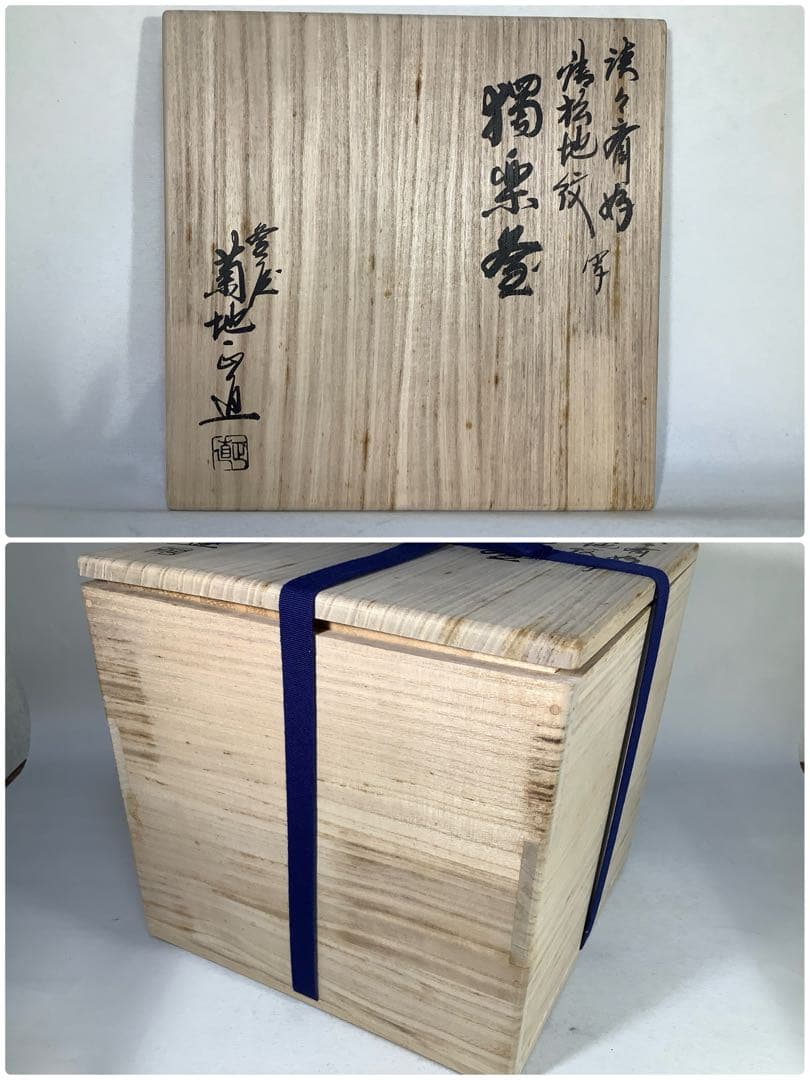 淡々斎好 写
唐松地紋
獨楽釜
菊地正直
正直